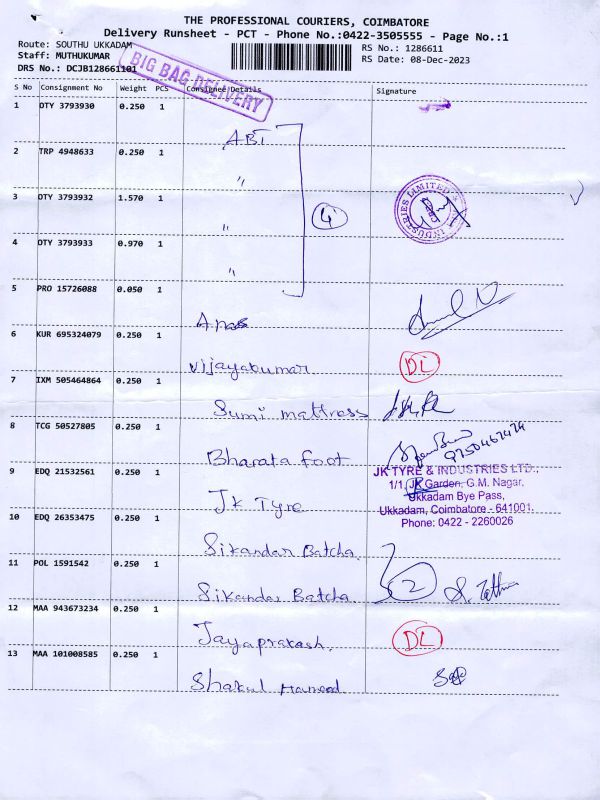 THE PROFESSIONAL COURIERS, COIMBATORE
Delivery Runsheet - PCT - Phone No.:0422-3505555 - Page No.:1
Route: SOUTHU UKKADAM
Staff: MUTHUKUMAR
DRS No.: DCJB128661101
RS No.: 1286611
RS Date: 08-Dec-2023
BIG BAG DELIVERY
S No Consignment No Weight PCS Consignee/Details Signature
1 DTY 3793930 0.250 1
ABT
2 TRP 4948633 0.250 1
"
3 DTY 3793932 1.570 1
"
4
INDUSTRIES LIMITED
4 DTY 3793933 0.970 1
"
5 PRO 15726088 0.050 1
Anas
6 KUR 695324079 0.250 1
Vijayakumar
DL
7 IXM 505464864 0.250 1
Sumi mattress
8 TCG 50527805 0.250 1
Bharata foot
9750467474
9 EDQ 21532561 0.250 1
JK Tyre
JK TYRE & INDUSTRIES LTD.,
1/1, JK Garden, G.M. Nagar,
Ukkadam Bye Pass,
Ukkadam, Coimbatore - 641001.
Phone: 0422 - 2260026
10 EDQ 26353475 0.250 1
Sikandar Batcha
11 POL 1591542 0.250 1
Sikandar Batcha
2
12 MAA 943673234 0.250 1
Jayaprakash
DL
13 MAA 101008585 0.250 1
Shakul Hameed